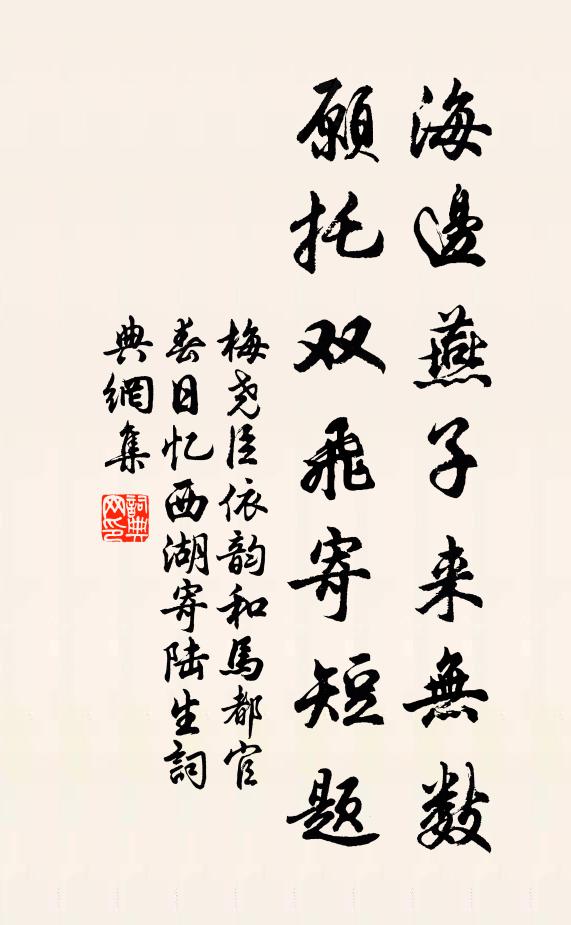 海邊燕子来無数
願托双飛寄短题
梅尧臣依韵和馬都官
春日忆西湖寄陆生詞
典網集
詞典网印